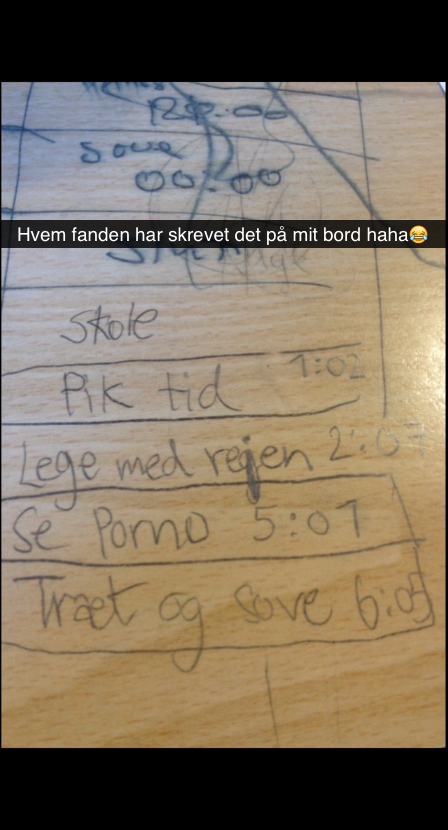 sove
00:00
Hvem fanden har skrevet det på mit bord haha😂
Skole
Pik tid 1:02
Lege med rejen 2:07
Se Porno 5:01
Træt og sove 6:05